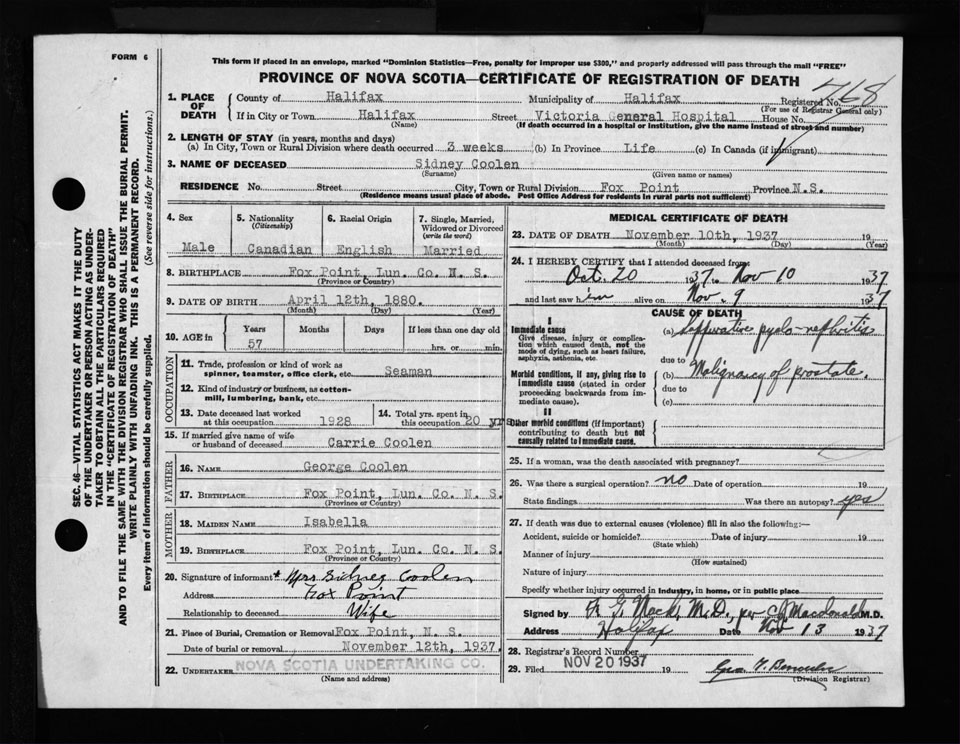 FORM 6
This form if placed in an envelope, marked "Dominion Statistics—Free, penalty for improper use $300," and properly addressed will pass through the mail "FREE"
PROVINCE OF NOVA SCOTIA—CERTIFICATE OF REGISTRATION OF DEATH
768
1. PLACE OF DEATH
County of Halifax Municipality of Halifax Registered No.
(For use of Registrar General only)
If in City or Town Halifax Street Victoria General Hospital House No.
(Name) (If death occurred in a hospital or institution, give the name instead of street and number)
2. LENGTH OF STAY (in years, months and days)
(a) In City, Town or Rural Division where death occurred 3 weeks (b) In Province Life (c) In Canada (if immigrant)
3. NAME OF DECEASED Sidney Coolen
(Surname) (Given name or names)
RESIDENCE No. Street City, Town or Rural Division Fox Point Province N.S.
(Residence means usual place of abode. Post Office Address for residents in rural parts not sufficient)
4. Sex 5. Nationality (Citizenship) 6. Racial Origin 7. Single, Married, Widowed or Divorced (write the word)
Male Canadian English Married
8. BIRTHPLACE Fox Point, Lun. Co. N. S.
(Province or Country)
9. DATE OF BIRTH April 12th, 1880.
(Month) (Day) (Year)
10. AGE in Years Months Days If less than one day old
57 hrs. or min.
OCCUPATION
11. Trade, profession or kind of work as spinner, teamster, office clerk, etc. Seaman
12. Kind of industry or business, as cotton-mill, lumbering, bank, etc.
13. Date deceased last worked at this occupation 1928
14. Total yrs. spent in this occupation 20 yrs
15. If married give name of wife or husband of deceased Carrie Coolen
FATHER
16. NAME George Coolen
17. BIRTHPLACE Fox Point, Lun. Co. N. S.
(Province or Country)
MOTHER
18. MAIDEN NAME Isabella
19. BIRTHPLACE Fox Point, Lun. Co. N. S.
(Province or Country)
20. Signature of informant Mrs Sidney Coolen
Address Fox Point
Relationship to deceased Wife
21. Place of Burial, Cremation or Removal Fox Point, N. S.
Date of burial or removal November 12th, 1937.
22. UNDERTAKER NOVA SCOTIA UNDERTAKING CO.
(Name and address)
MEDICAL CERTIFICATE OF DEATH
23. DATE OF DEATH November 10th, 1937 19
(Month) (Day) (Year)
24. I HEREBY CERTIFY that I attended deceased from
Oct. 20 1937 to Nov 10 1937
and last saw him alive on Nov. 9 1937
CAUSE OF DEATH
I
Immediate cause
Give disease, injury or complication which caused death, not the mode of dying, such as heart failure, asphyxia, asthenia, etc.
(a) Suppurative pyelo-nephritis
due to
Morbid conditions, if any, giving rise to immediate cause (stated in order proceeding backwards from immediate cause).
(b) Malignancy of prostate.
due to
(c)
II
Other morbid conditions (if important) contributing to death but not causally related to immediate cause.
25. If a woman, was the death associated with pregnancy?
26. Was there a surgical operation? no Date of operation 19
State findings Was there an autopsy? yes
27. If death was due to external causes (violence) fill in also the following:—
Accident, suicide or homicide? Date of injury 19
(State which)
Manner of injury
(How sustained)
Nature of injury
Specify whether injury occurred in industry, in home, or in public place
Signed by F. G. Mack, M.D., per C Macdonald M.D.
Address Halifax Date Nov 13 1937
28. Registrar's Record Number
29. Filed NOV 20 1937 19
(Division Registrar)
SEC. 46—VITAL STATISTICS ACT MAKES IT THE DUTY
OF THE UNDERTAKER OR PERSON ACTING AS UNDER-
TAKER TO OBTAIN ALL THE PARTICULARS REQUIRED
IN THE "CERTIFICATE OF REGISTRATION OF DEATH"
AND TO FILE THE SAME WITH THE DIVISION REGISTRAR WHO SHALL ISSUE THE BURIAL PERMIT.
WRITE PLAINLY WITH UNFADING INK. THIS IS A PERMANENT RECORD.
Every item of information should be carefully supplied. (See reverse side for instructions.)